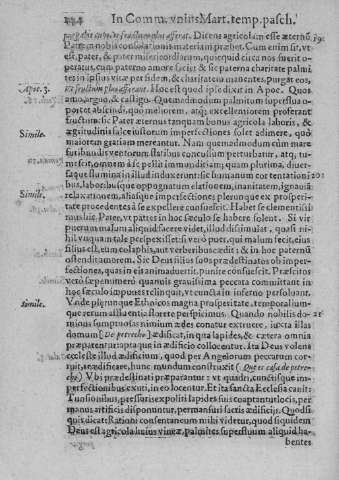 In Comm. vnius Mart. temp. pasch.
purgabit eum vt fructum plus afferat. Dicens agricolam esse æternũ 19.
Patrem nobis consolationis materiam præbet. Cum enim sit, vt
est, pater, & pater misericordiarum, quicquid circa nos fuerit o-
peratus, cum paterno amore faciet & sic paterna charitate palmi-
tes in ipsius vitæ per fidem, & charitatem manentes, purgat eos,
Apoc. 3. vt fructum plus afferant. Hoc est quod ipse dixit in Apoc. Quos
amo, arguo, & castigo. Quemadmodum palmitum superflua o-
portet abscindi, quo meliorem, atq; excellentiorem proferant
fructum: sic Pater æternus tanquam bonus agricola laboris, &
Simile. ægritudinis falce iustorum imperfectiones solet adimere, quo
maiorem gratiam mereantur. Nam quemadmodum cùm mare
furibundis ventorum flatibus concussum perturbatur, atq, tu-
mescit, omnem à se pellit immunditiam, quam plurima, diuer-
saque flumina in illud induxerunt: sic humanum cor tentationi 20
bus, laboribusque oppugnatum elationem, inanitatem, ignauiã
Simile. relaxationem, aliasque imperfectiones plerunque ex prosperi-
tate procedentes à se expellere consueuit. Habet se clementissi-
mus hic Pater, vt patres in hoc sæculo se habere solent. Si vir
puerum malum aliquid facere videt, illud dissimulat, quasi ni-
hil
filius est, eum colaphis, aut verberibus cædit: & in hoc paternũ
ostendit amorem. Sic Deus filios suos prædestinatos ob imper-
fectiones, quas in eis animaduertit, punire consueuit. Præscitos
verò sæpenumerò quamuis grauissima peccata committant in
hoc sæculo impunes relinquit, vt cuncta in inferno persoluant.
Simile. Vnde plerunque Ethnicos magna prosperitate, temporalium-
que rerum affluentia florere perspicimus. Quando nobilis do- 21
minus sumptuosas nimium ædes conatur extruere, iuxta illas
domum [De petrecho] ædificat, in qua lapides, & cætera omnia
præparent, aptaque in ædificio collocentur. Ita Deus volens
ecclestẽ illud ædificium, quod per Angelorum peccatum cor-
ruit, reædificare, hunc mundum construxit (Que es casa de petre-
cho) Vbi prædestinati præparantur: vt quadri, cunctisque im-
perfectionibus exuti, in eo locentur. Et ita sancta Ecclesia canit:
Tunsionibus, pressuris expoliti lapides suis coaptantur locis, per
manus artificis disponuntur, permansuri sacris ædificijs. Quod si
quis dicat: Rationi consentaneum mihi videtur, quod siquidem
Deus est agricola huius vineæ, palmites superfluum aliquid ha-
bentes